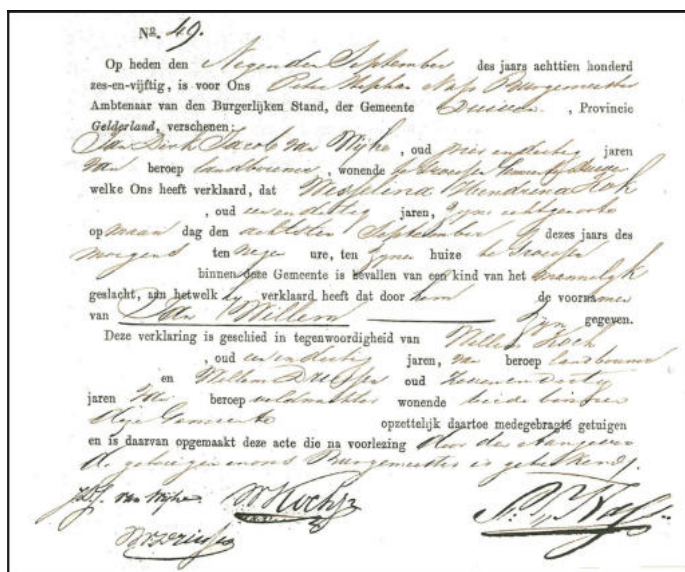 No. 49.
Op heden den Negenden September des jaars achttien honderd
zes-en-vijftig, is voor Ons Peter Stephan Nass Burgemeester
Ambtenaar van den Burgerlijken Stand, der Gemeente Duiven, Provincie
Gelderland, verschenen:
Jan Dirk Jacob van Wijhe, oud jaren
van beroep landbouwer, wonende te Groessen Gemeente Duiven
welke Ons heeft verklaard, dat Wesselina Hendrina Koch
, oud een en dertig jaren, Zijne echtgenoote
op maan dag den achtsten September dezes jaars des
morgens ten negen ure, ten Zijnen huize te Groessen
binnen deze Gemeente is bevallen van een kind van het mannelijk
geslacht, aan hetwelk hij verklaard heeft dat door hem de voornamen
van Jan Willem Zijn gegeven.
Deze verklaring is geschied in tegenwoordigheid van Willem Koch
, oud een en dertig jaren, van beroep landbouwer
en Willem Driessen oud Zeven en dertig
jaren van beroep veldwachter wonende beide binnen
deze Gemeente opzettelijk daartoe medegebragte getuigen
en is daarvan opgemaakt deze acte die na voorlezing door den Aangever
de getuigen en ons Burgemeester is geteekend.
J.D.J. van Wijhe W. Koch P. S. Nass
W. Driessen